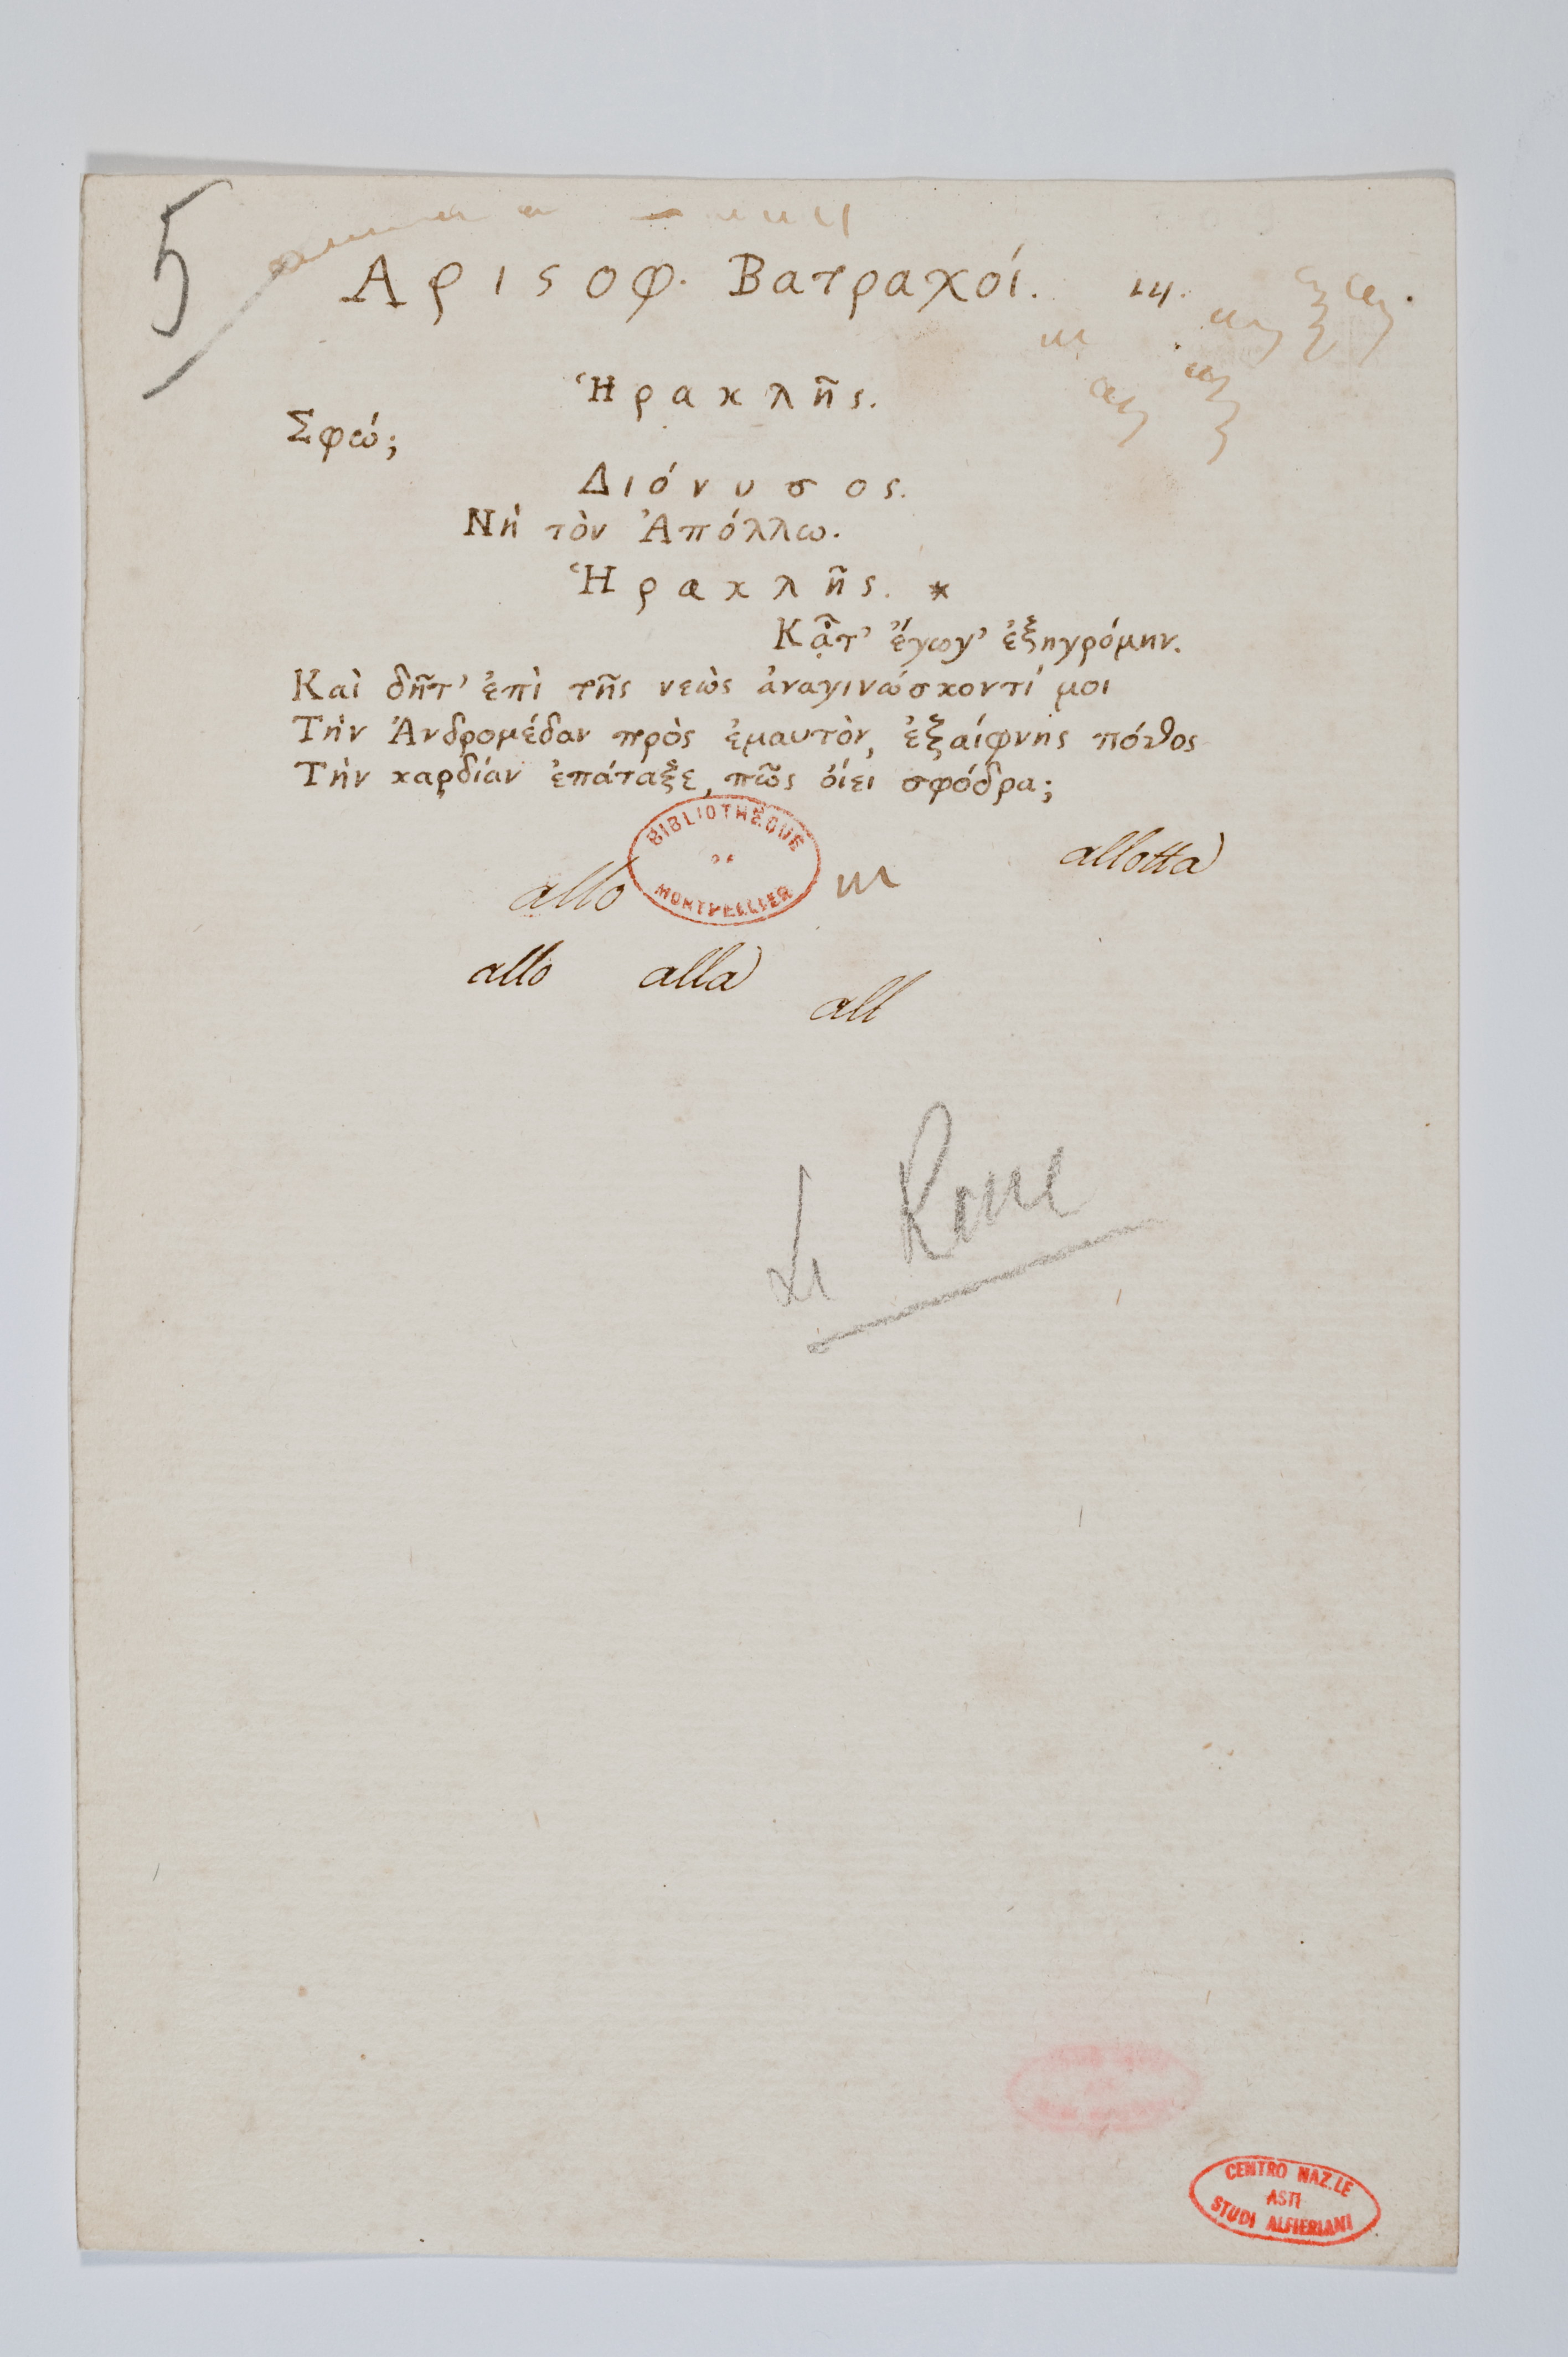 5
Αρισοφ. Βατραχοί. 14.
Ἡρακλῆς.
Σφώ;
Διόνυσος.
Νὴ τὸν Ἀπόλλω.
Ἡρακλῆς. *
Κᾆτ' ἔγωγ' ἐξηγρόμην.
Καὶ δῆτ' ἐπὶ τῆς νεὼς ἀναγινώσκοντί μοι
Τὴν Ἀνδρομέδαν πρὸς ἐμαυτὸν, ἐξαίφνης πόθος
Τὴν καρδίαν ἐπάταξε, πῶς ὄιει σφόδρα;
BIBLIOTHÈQUE
DE
MONTPELLIER
allotta
allo
allo alla
all
Le Rane
CENTRO NAZ.LE
ASTI
STUDI ALFIERIANI